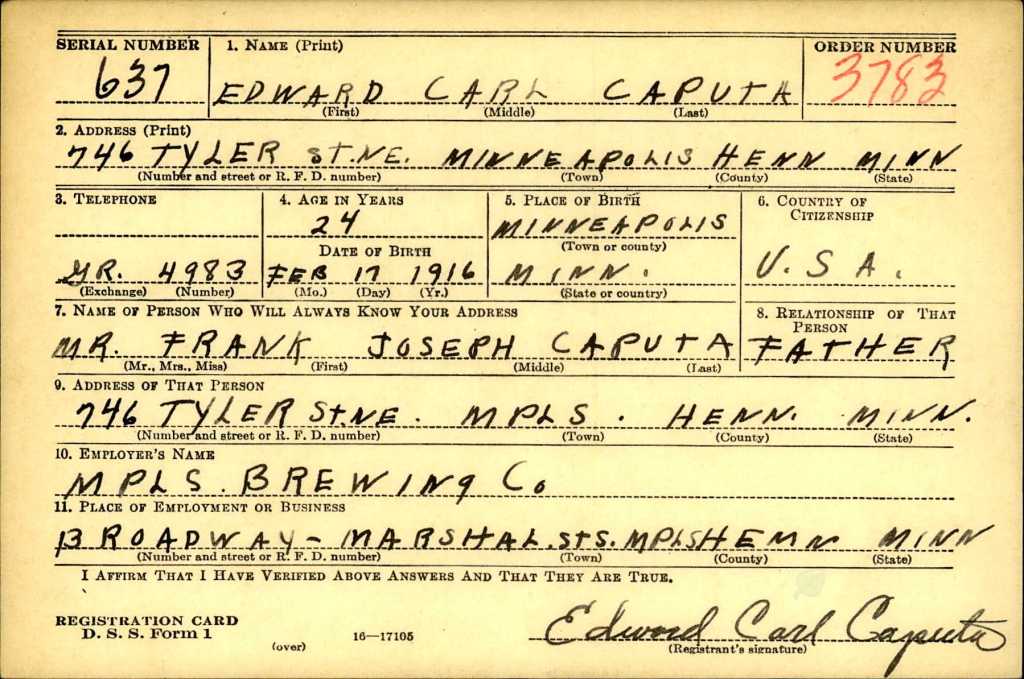 SERIAL NUMBER 1. NAME (Print) ORDER NUMBER
637 EDWARD CARL CAPUTA 3783
(First) (Middle) (Last)
2. ADDRESS (Print)
746 TYLER ST. NE. MINNEAPOLIS HENN MINN
(Number and street or R. F. D. number) (Town) (County) (State)
3. TELEPHONE 4. AGE IN YEARS 5. PLACE OF BIRTH 6. COUNTRY OF CITIZENSHIP
24 MINNEAPOLIS
DATE OF BIRTH (Town or county)
GR. 4983 FEB 17 1916 MINN. U.S A.
(Exchange) (Number) (Mo.) (Day) (Yr.) (State or country)
7. NAME OF PERSON WHO WILL ALWAYS KNOW YOUR ADDRESS 8. RELATIONSHIP OF THAT PERSON
MR. FRANK JOSEPH CAPUTA FATHER
(Mr., Mrs., Miss) (First) (Middle) (Last)
9. ADDRESS OF THAT PERSON
746 TYLER ST. NE. MPLS. HENN. MINN.
(Number and street or R. F. D. number) (Town) (County) (State)
10. EMPLOYER'S NAME
MPLS. BREWING CO
11. PLACE OF EMPLOYMENT OR BUSINESS
BROADWAY - MARSHAL. STS. MPLS HENN MINN
(Number and street or R. F. D. number) (Town) (County) (State)
I AFFIRM THAT I HAVE VERIFIED ABOVE ANSWERS AND THAT THEY ARE TRUE.
REGISTRATION CARD
D. S. S. Form 1 16—17105 Edward Carl Caputa
(over) (Registrant's signature)